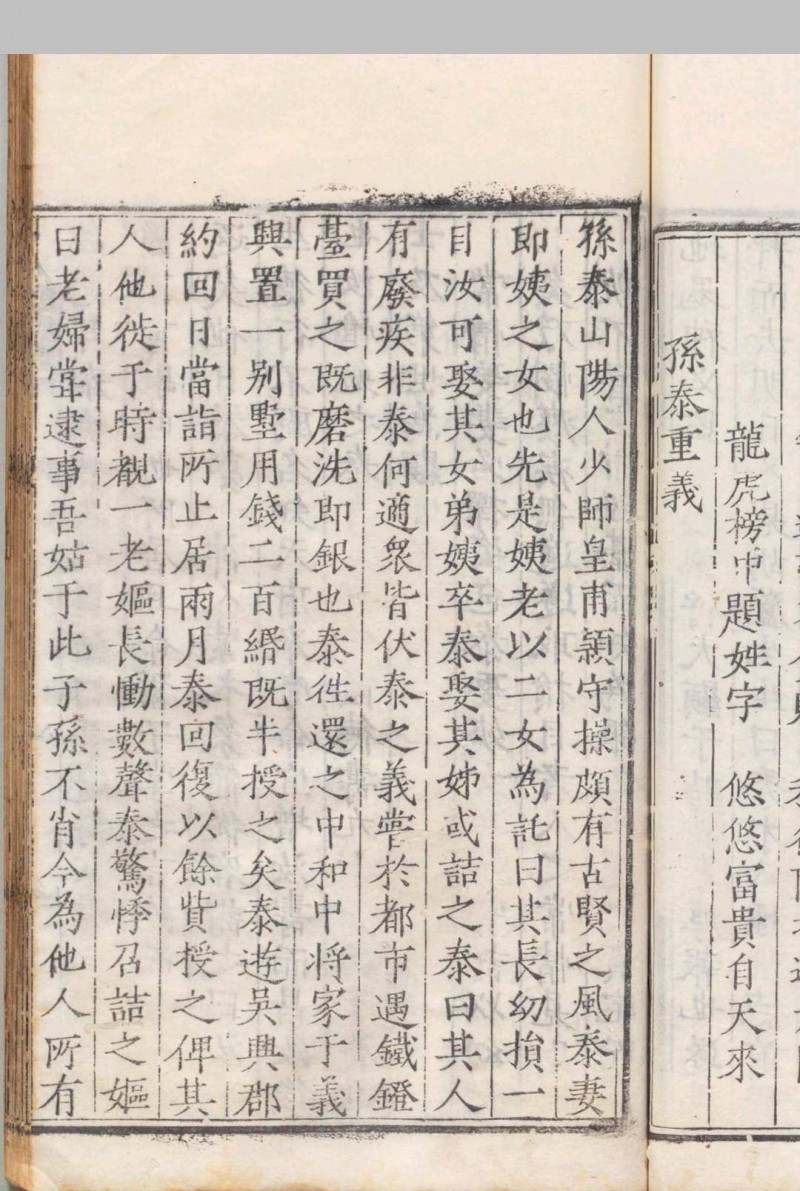 龍虎榜中題姓字　悠悠富貴自天來
孫泰重義
孫泰山陽人少師皇甫穎守操頗有古賢之風泰妻
即姨之女也先是姨老以二女為託曰其長幼損一
目汝可娶其女弟姨卒泰娶其姊或詰之泰曰其人
有廢疾非泰何適衆皆伏泰之義嘗於都市遇鐵鐙
臺買之既磨洗即銀也泰徃還之中和中將家于義
興置一别墅用錢二百緡既半授之矣泰遊吳興郡
約回日當詣所止居兩月泰回復以餘貲授之俾其
人他徙于時覩一老嫗長慟數聲泰驚悸召詰之嫗
曰老婦嘗逮事吾姑于此子孫不肖今為他人所有